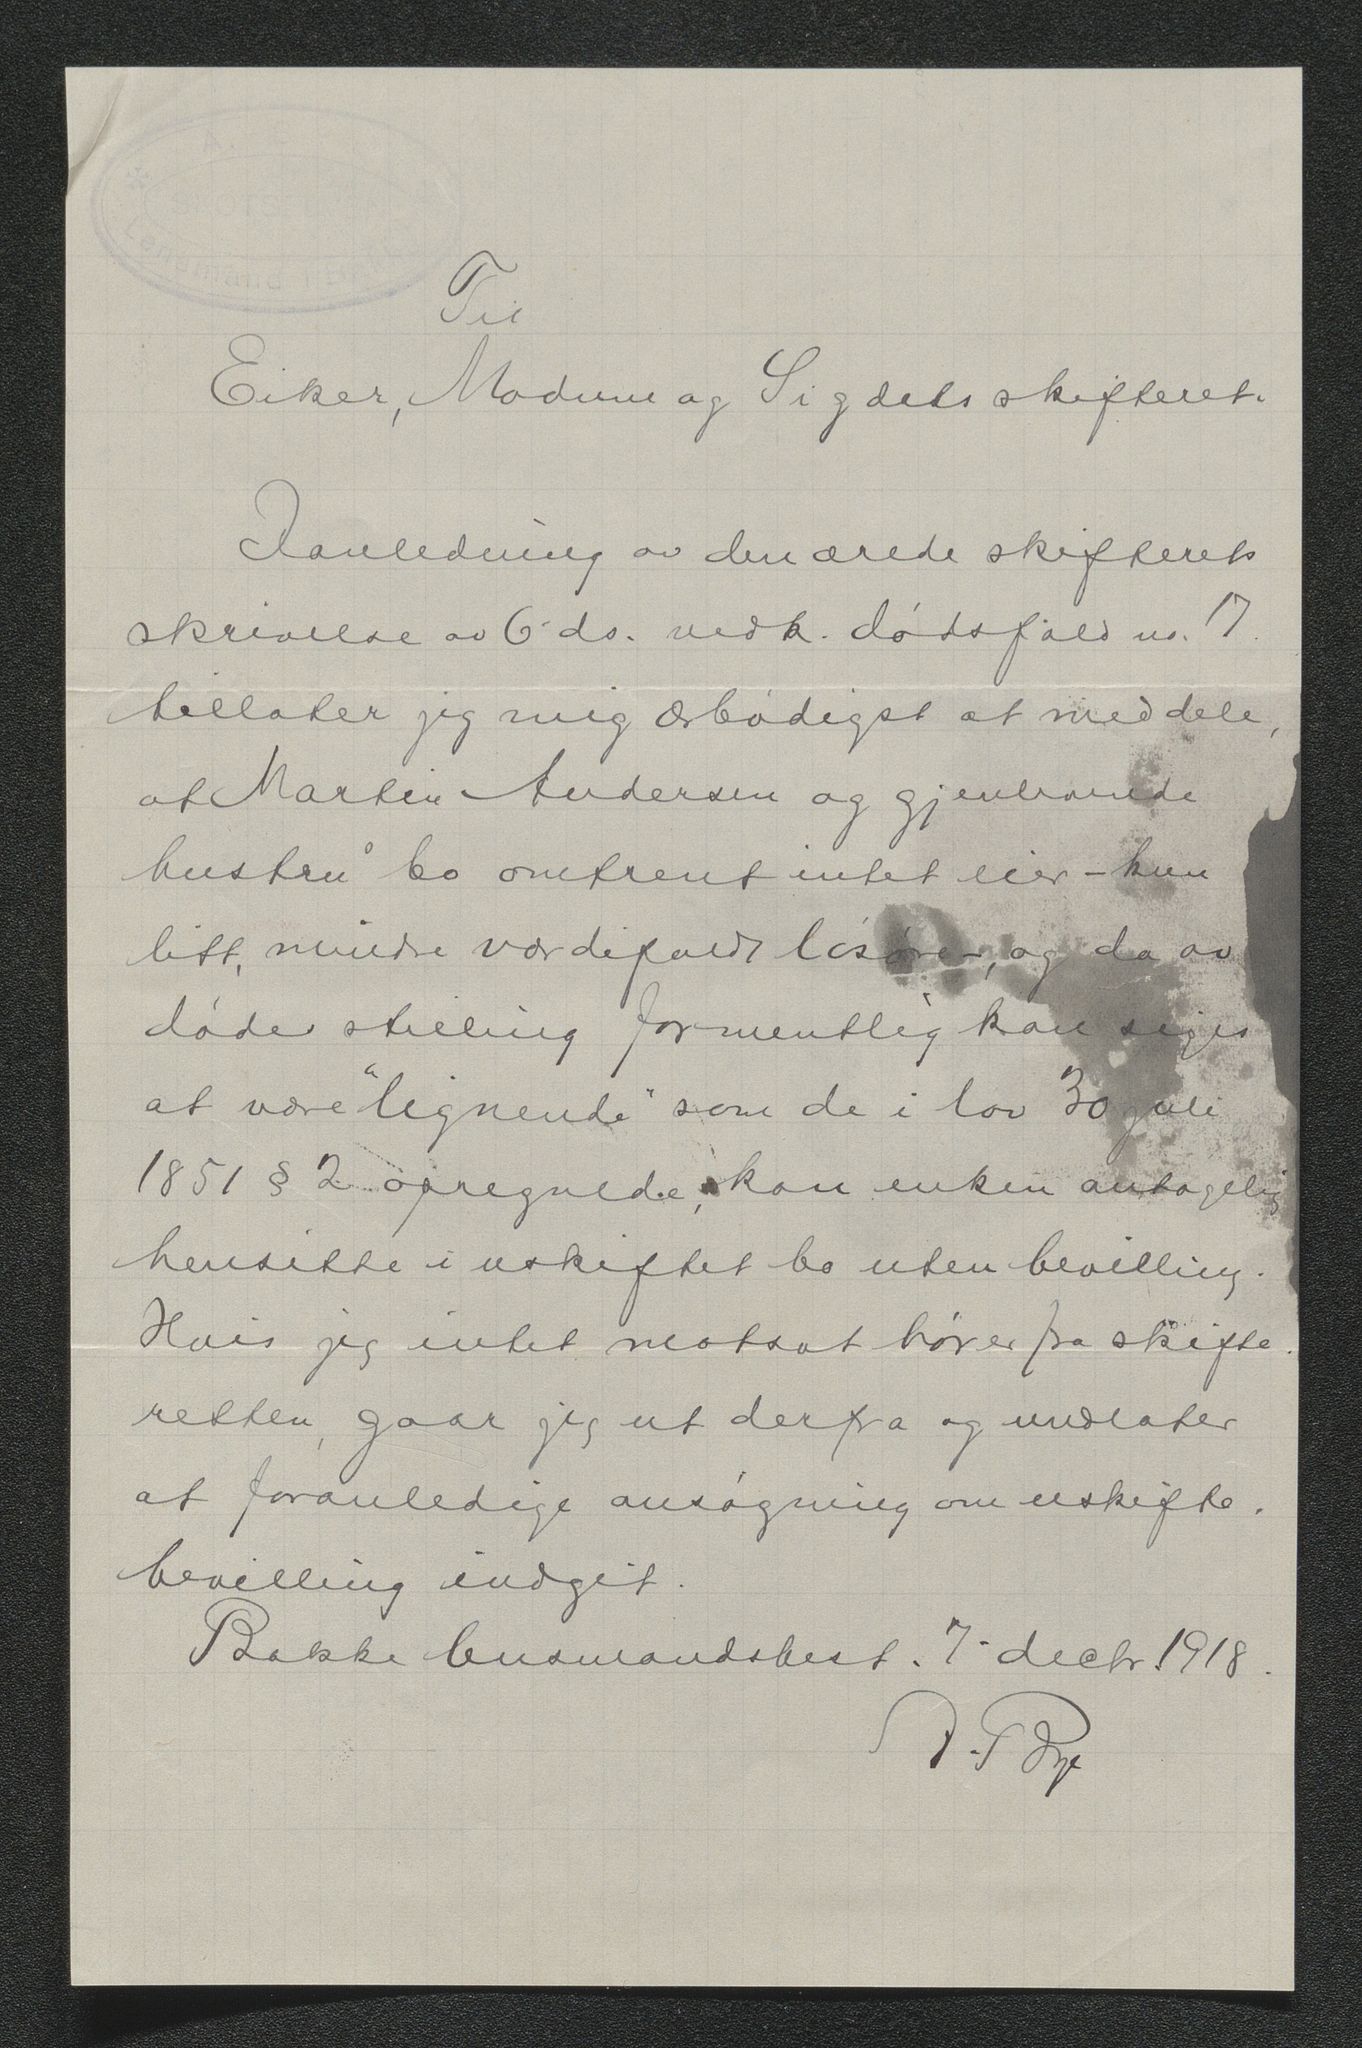 Til
Eiker, Modum og Sigdals skifteret.
Ianledning av den ærede skifterets
skrivelse av 6 ds. vedk. dødsfald no. 17
tillater jeg mig ærbødigst at meddele,
at Martin Andersen og gjenlevende
hustru's bo omtrent intet eier - kun
litt, mindre værdifuldt løsøre -, og da av
dødes stilling formentlig kan siges
at være "lignende" som de i lov 30 juli
1851 § 2 opregnede, kan enken antagelig
hensitte i uskiftet bo uten bevilling.
Hvis jeg intet motsat hører fra skifte-
retten, gaar jeg ut derfra og undlater
at foranledige ansøgning om uskifte-
bevilling indgit.
Bakke lensmandsbest. 7 decbr. 1918.
Lensmand i